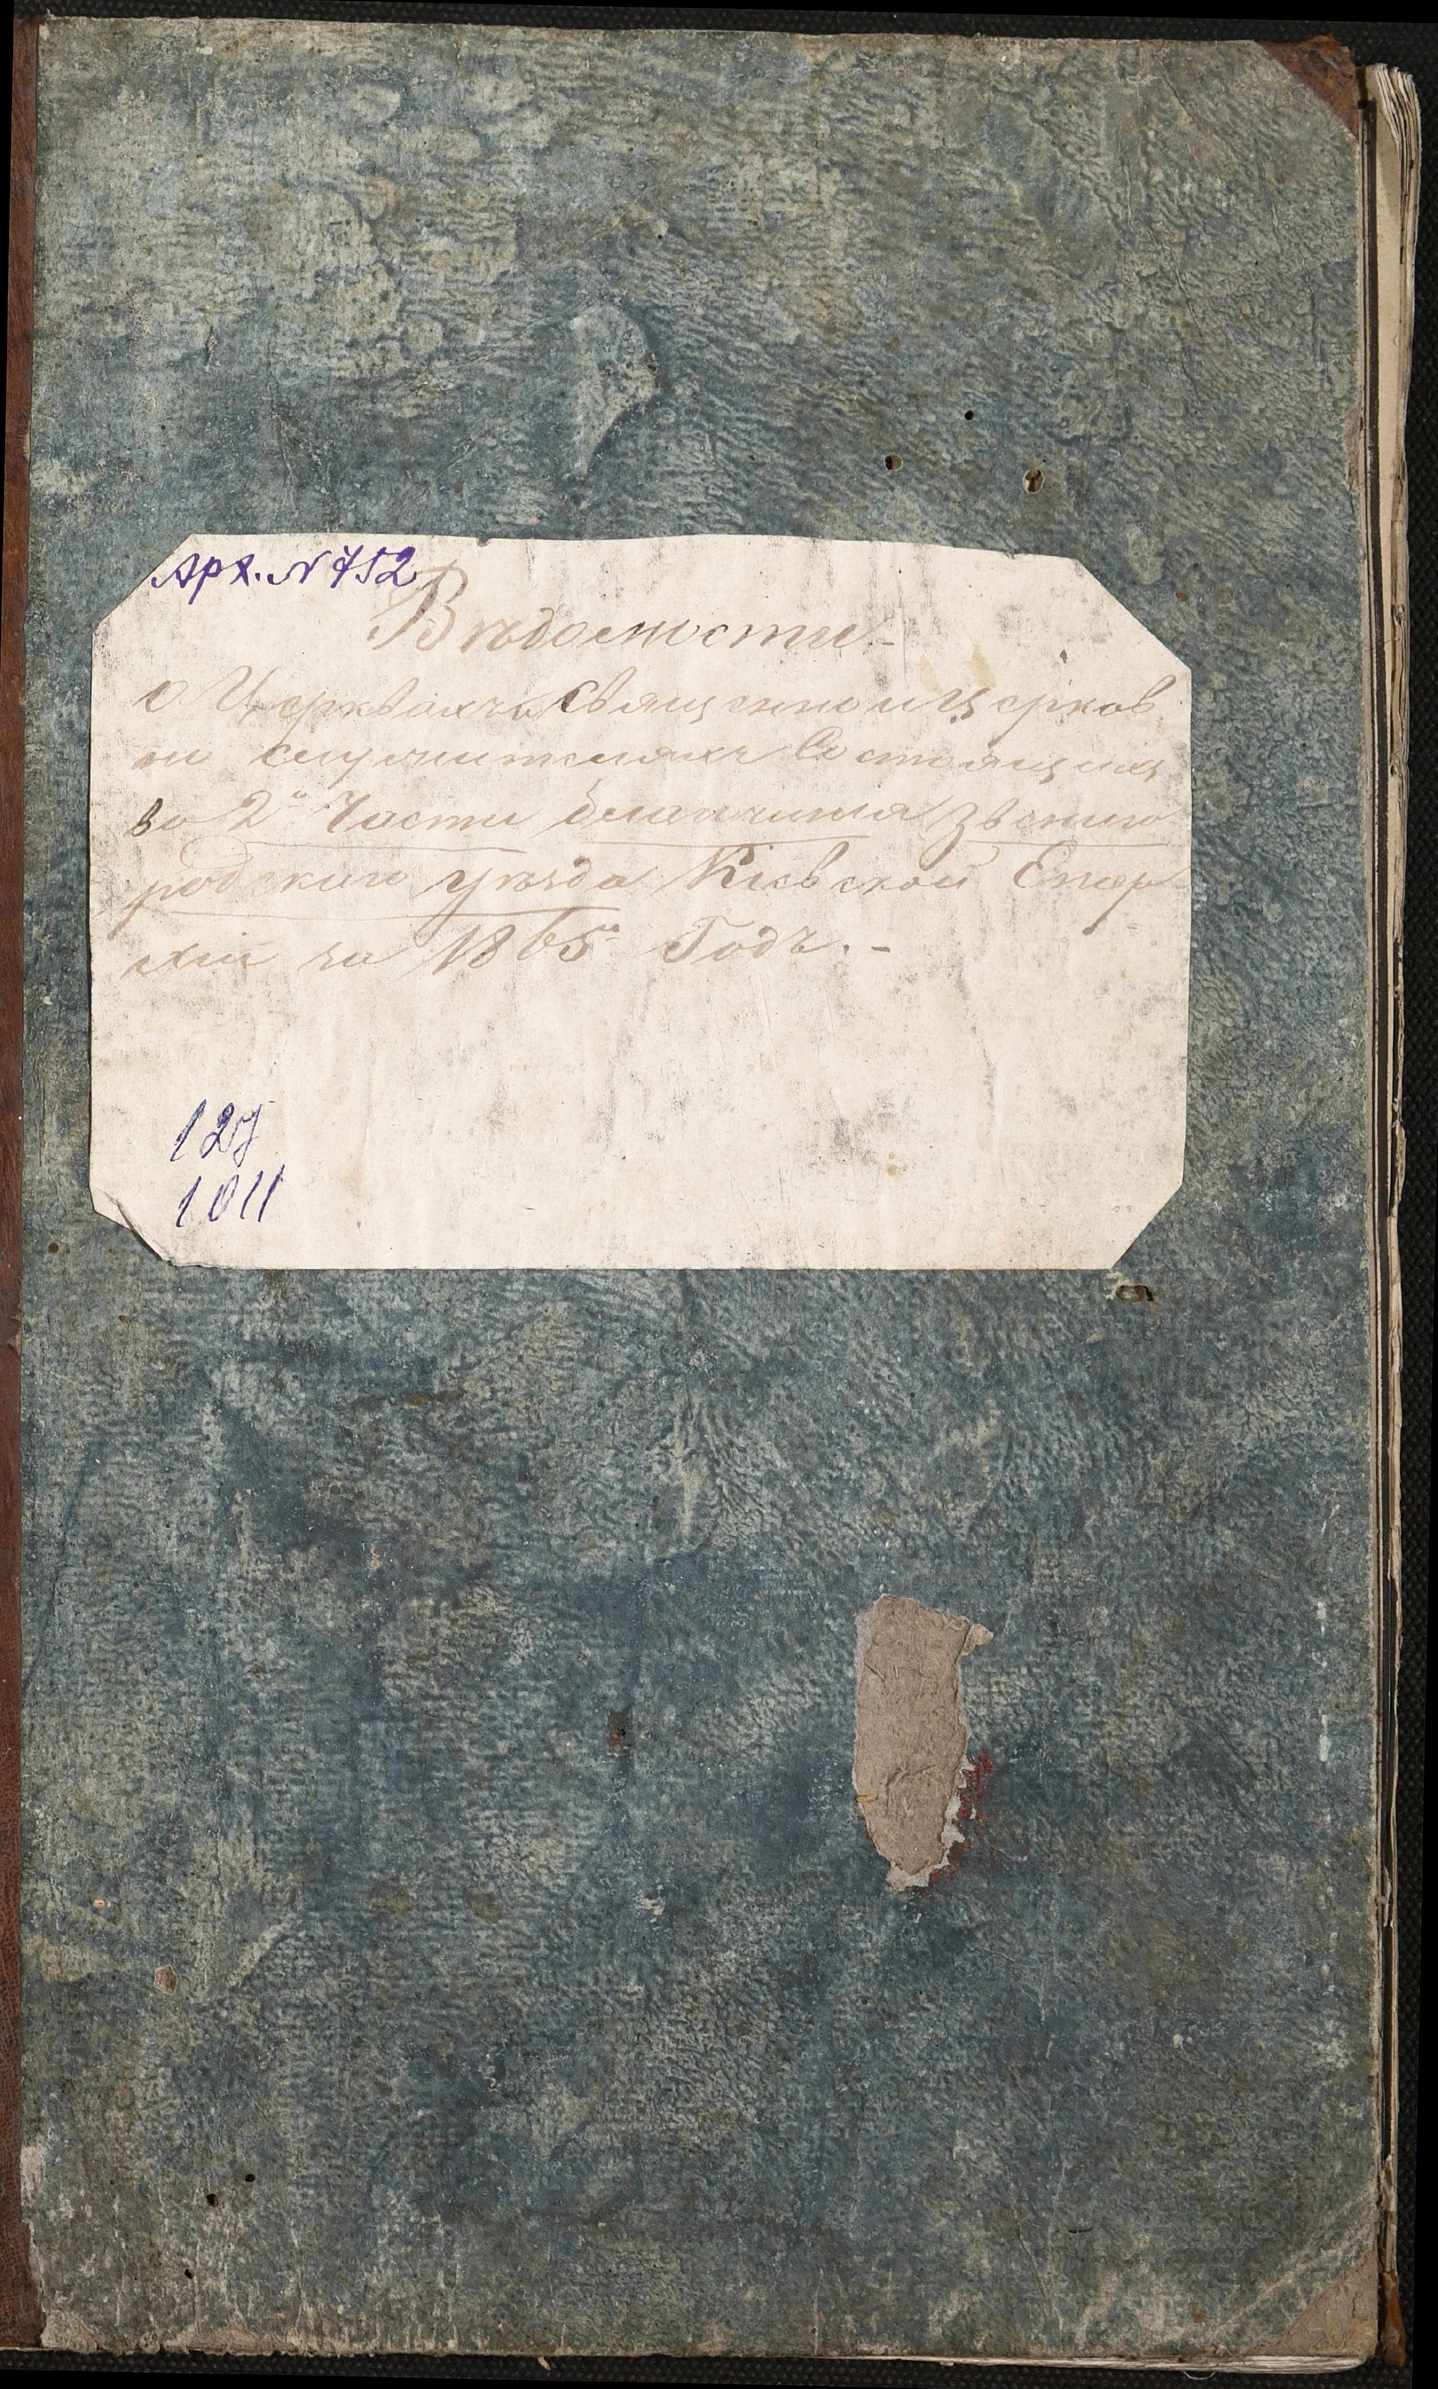 Арх. N 752
Вѣдомости
о Церквахъ Священно и Церков
но служителяхъ Состоящихъ
во 2й Части благочинія Звениго
родскаго Уѣзда Кіевской Епар
хіи за 1865й Годъ. -
127
1011